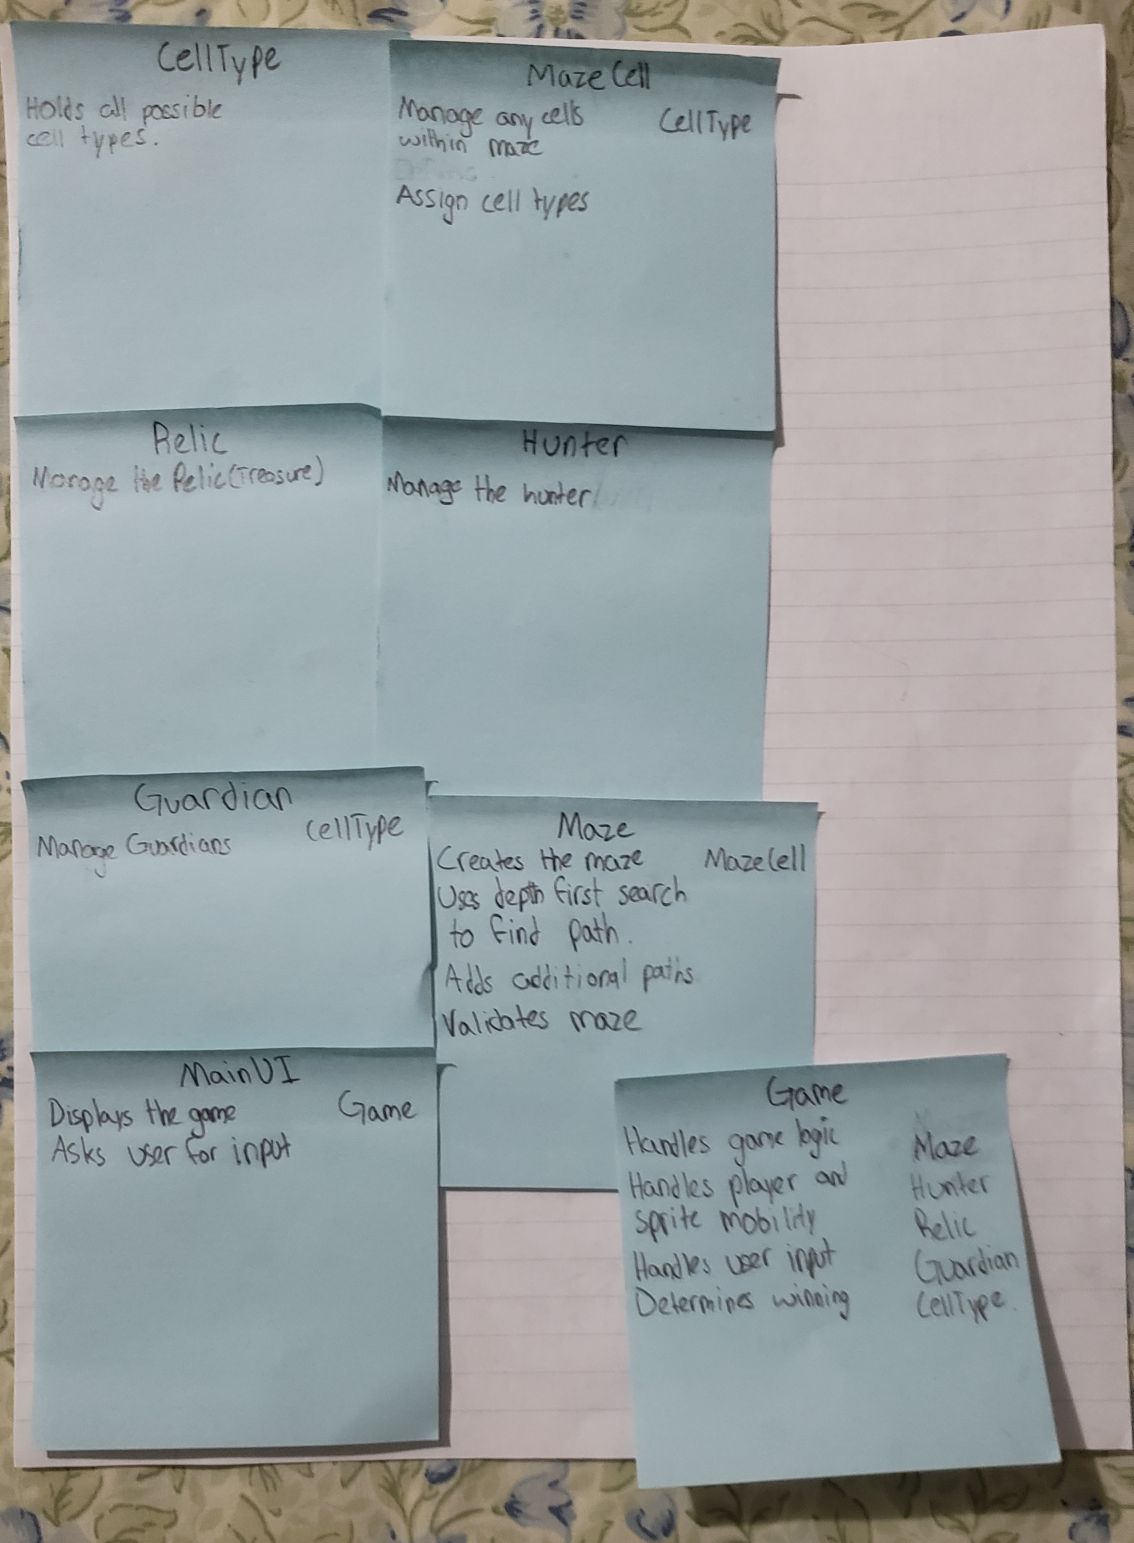 CellType
Holds all possible
cell types.
MazeCell
Manage any cells
within maze
CellType
Assign cell types
Relic
Manage the Relic(Treasure)
Hunter
Manage the hunter
Guardian
Manage Guardians
CellType
Maze
Creates the maze
MazeCell
Uses depth first search
to find path.
Adds additional paths
Validates maze
MainUI
Displays the game
Game
Asks user for input
Game
Handles game logic
Handles player and
sprite mobility
Handles user input
Determines winning
Maze
Hunter
Relic
Guardian
CellType.